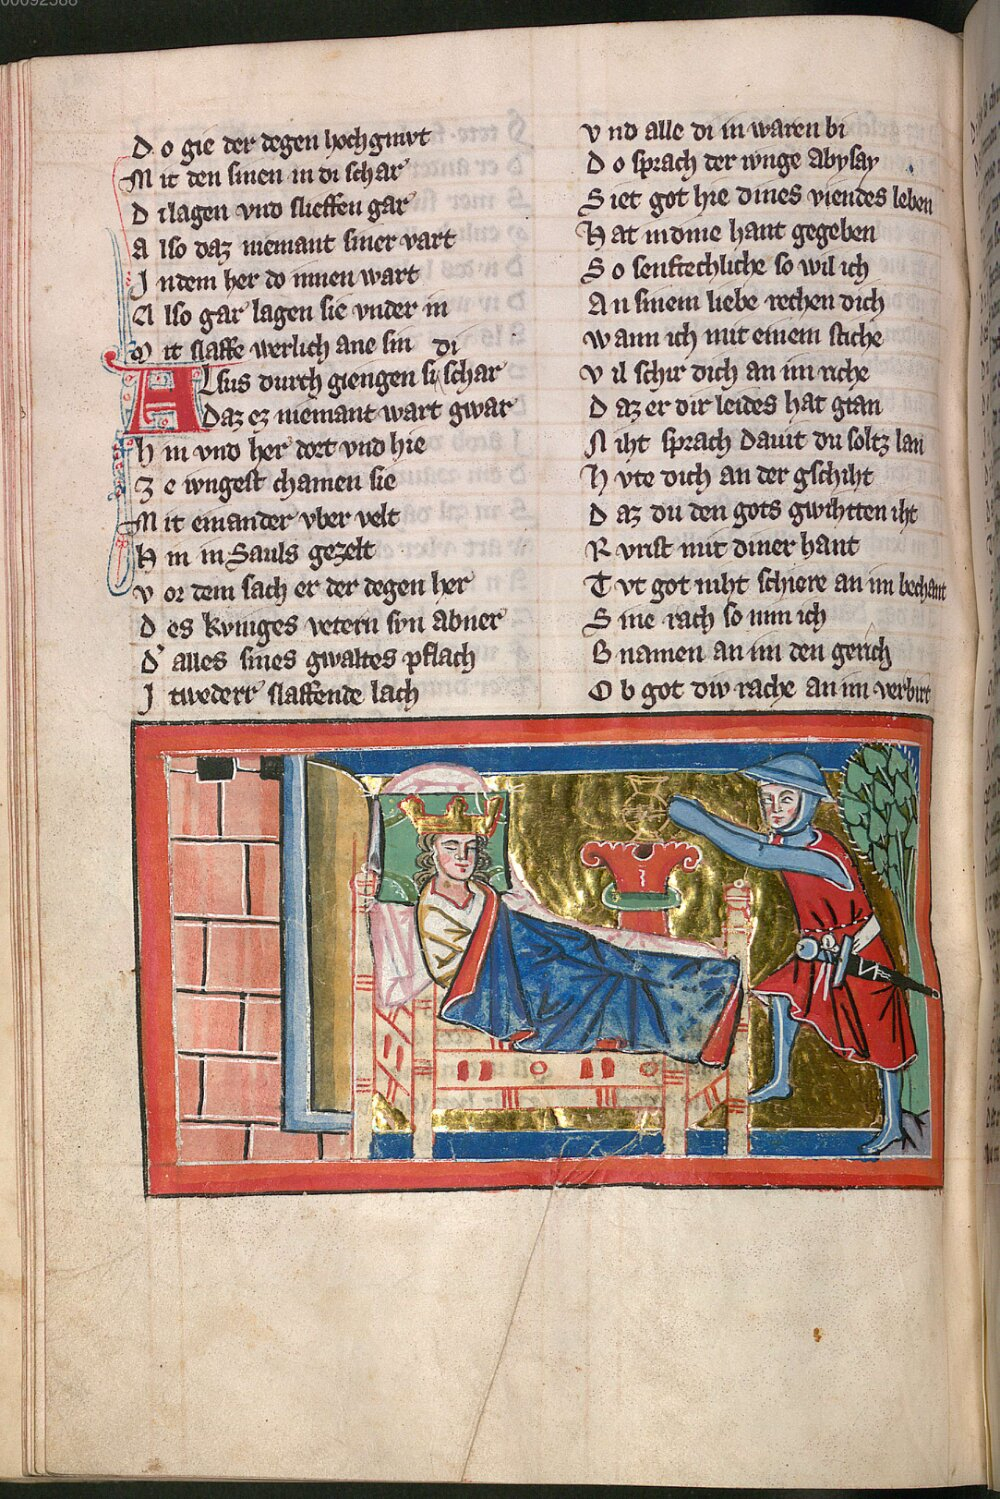 00092588
D o gie der degen hochgmvt
M it den sinen in di schar
D ilagen vnd slieffen gar
A lso daz niemant siner vart
J ndem her do innen wart
A lso gar lagen sie vnder in
M it slaffe werlich ane sin
Alsus durch giengen si di schar
Daz ez niemant wart gwar
H in vnd her dort vnd hie
Z e ivngest chamen sie
M it einander vber velt
H in in Sauls gezelt
V or dem sach er der degen her
D es kvniges vetern svn abner
D' alles sines gwaltes pflach
J twederr slaffende lach
V nd alle di in waren bi
D o sprach der ivnge Abysay
S iet got hie dines viendes leben
H at indine hant gegeben
S o senftechliche so wil ich
A n sinem liebe rechen dich
W ann ich mit einem stiche
V il schir dich an im riche
D az er dir leides hat gtan
N iht sprach Dauit du soltz lan
H vte dich an der gschiht
D az du den gots gwihtten iht
R vrist mit diner hant
T vt got niht schiere an im bechant
S ine rach so nim ich
B namen an im den gerich
O b got div rache an im verbirt